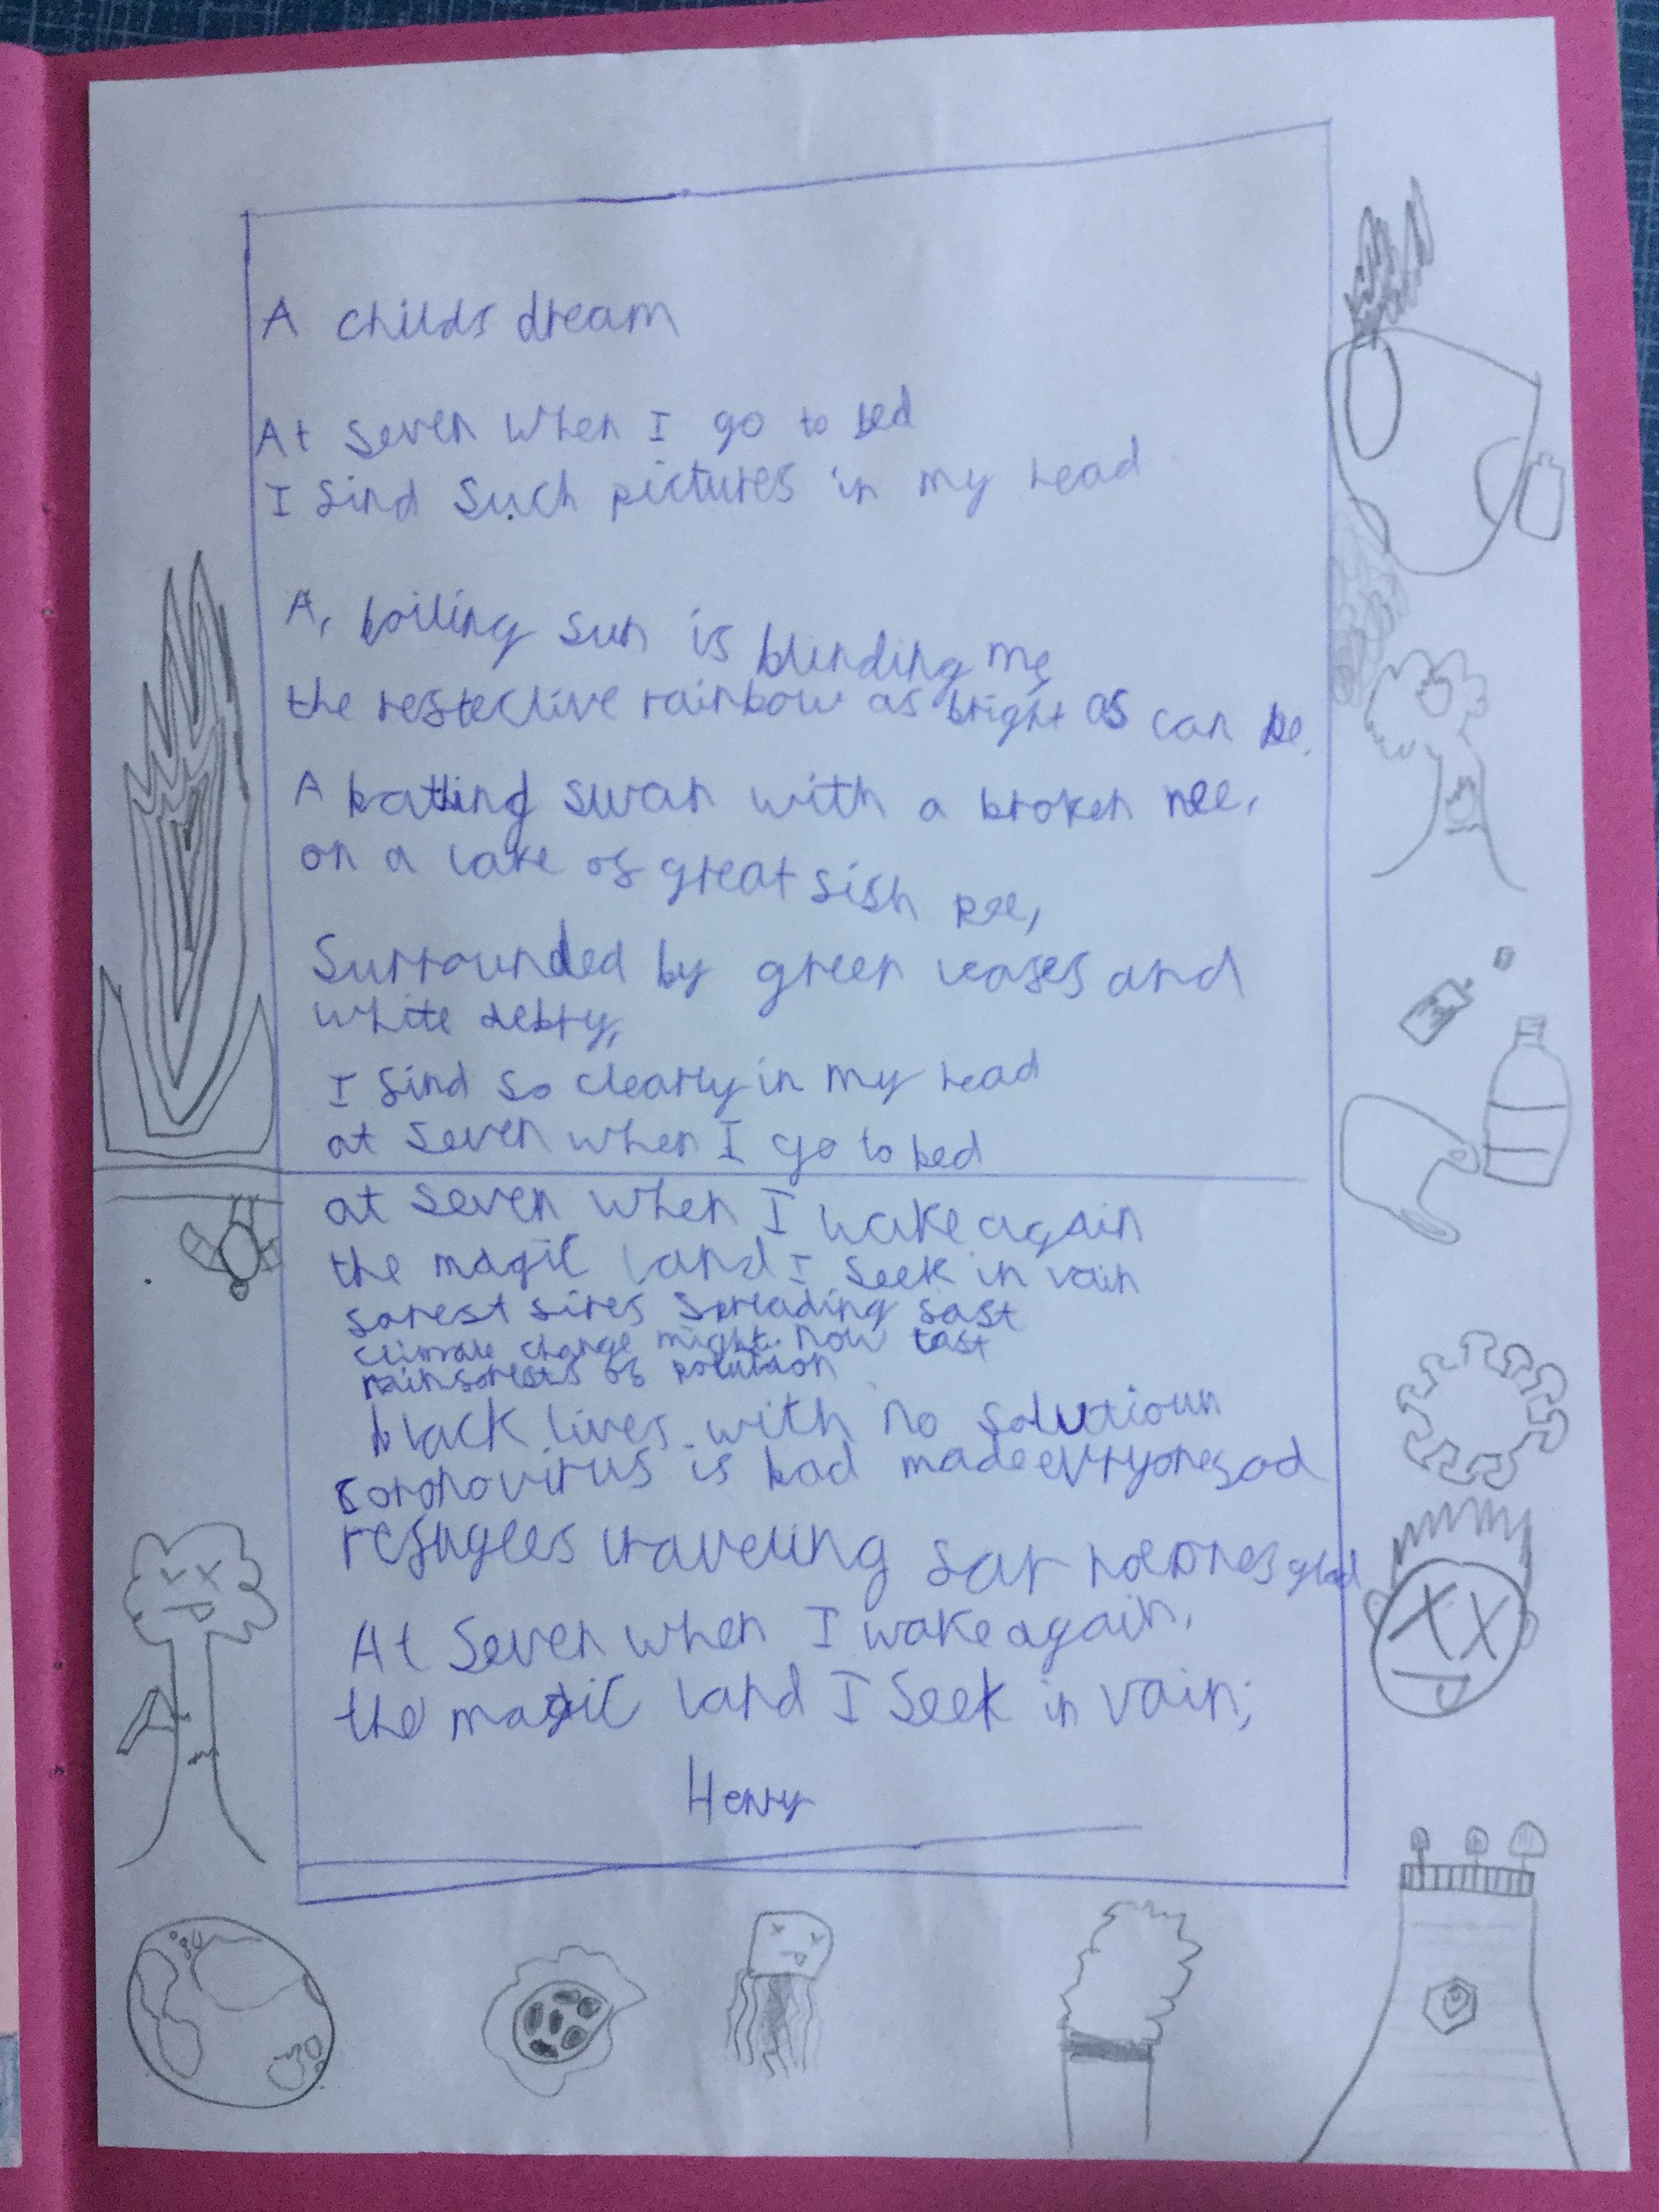 A childs dream
At Seven when I go to bed
I find Such pictures in my head
A, boiling sun is blinding me,
the reflective rainbow as bright as can be.
A swan with a broken nee,
on a lake of great fish pee,
Surrounded by green leafes and
white debry,
I find so clearly in my head
at Seven when I go to bed
at seven when I wake again
the magic land I seek in vain
forest fires spreading fast
climate change might now last
rainforests of polution
black lives with no solutioun
coronovirus is bad made evryone sad
refugees traveling far glad
At Seven when I wake again,
the magic land I Seek in vain;
Henry